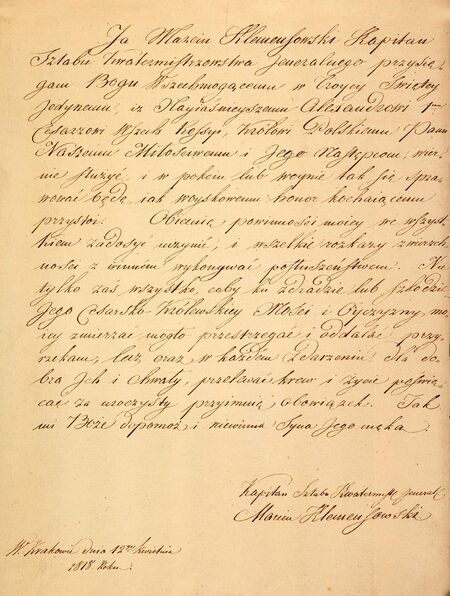 Ja Marcin Klemensowski Kapitan
Sztabu Kwatermistrzowstwa Jeneralnego przysię-
gam Bogu Wszechmogącemu w Troycy Świętey
Jedynemu, iż Nayiaśnieyszemu Alexandrowi 1mu
Cesarzowi Wszech Rossyi, Królowi Polskiemu Panu
Naszemu Miłościwemu i Jego Następcom, wier-
nie służyć, i w pokoiu lub woynie tak się spra-
wować będę, iak woyskowemu honor kochaiącemu
przystoi. Obiecuię powinności moiey we wszyst-
kiem zadosyć uczynić, i wszelkie rozkazy zwierzch-
ności z winnem wykonywać posłuszeństwem. Nie
tylko zaś wszystko, coby ku zdradzie lub szkodzie
Jego Cesarsko-Królewskiey Mości i Oyczyzny mo-
iey zmierzać mogło przestrzegać i oddalać przy-
rzekam, lecz oraz w każdem zdarzeniu dla do-
bra Jch i chwały, przelewać krew i życie poświę-
cać za uroczysty przyimuię obowiązek. Tak
mi Boże dopomoż i niewinna Syna Jego męka.
Kapitan Sztabu Kwatermist. Jeneral.
Marcin Klemensowski
W Krakowie dnia 12go Kwietnia
1818 Roku.